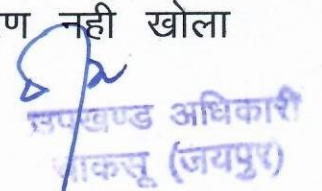 ण नही खोला
उपखण्ड अधिकारी
चाकसू (जयपुर)